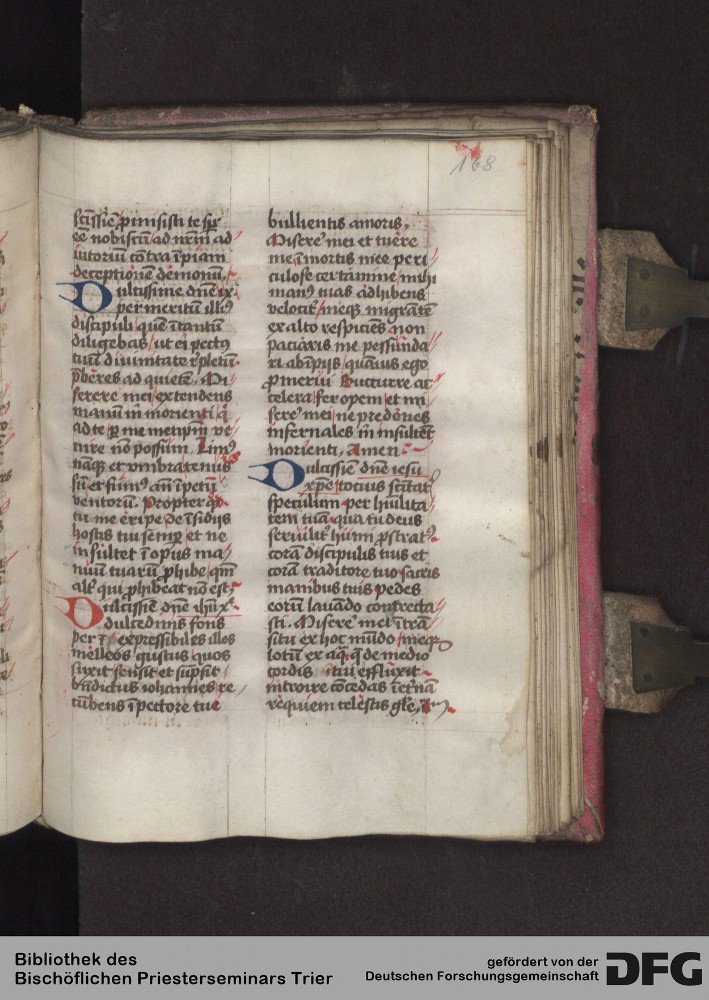 168
scīssīe ꝓmisisti te sꝑ
eē nobiscū ad nr̄m ad
iutoriū cōtra īpiam
deceptionē demonū.
Dulcissime dn̄e ix̄ꝰ
per meritū illiꝰ
discipuli quē ītantū
diligebas ut ei pectꝰ
tuū diuinitate repletū
p̄beres ad quietē. Mi
serere mei extendens
manū m̄ morienti q̄
ad te ꝑ me metip̄m ve
nire nō possum. Limꝰ
nāqꝫ et vmbratenus
sū et fumꝰ an̄ īpetū
ventorū. Propter qd̓
tu me eripe de īsidijs
hostis tui semꝑ et ne
insultet ī opus ma
nuū tuarū ꝓhibe qm̄
alꝰ qui ꝓhibeat nō est.
Dulcissīe dn̄e ih̄u x̄ꝰ
dulcedinis fons
per īexpressibiles illos
melleos gustus quos
suxit sensit et sūpsit
bn̄dictus iohannes re
cūbens ī pectore tue
bullientis amoris.
Misere mei et tuere
me ī mortis mee peri
culose certamine mihi
manꝰ tuas adhibens
velocit̓ meqꝫ migrātē
ex alto respiciēs non
paciaris me pessunda
ri ab īpijs quāuis ego
ꝓmerui Sucurre ac
celera fer opem et mi
sere mei ne predōnes
infernales m̄ insultēt
morienti. Amen.
Dulcissīe dn̄e iesu
xp̄e tocius sc̄itat̓
speculum per hūilita
tem tuā qua tu deus
seruilit̓ humi ꝓstratꝰ
corā discipulis tuis et
corā traditore tuo sacris
manibus tuis pedes
eorū lauādo contrecta
sti. Misere mei trā
situ ex hoc mūdo meqꝫ
lotū ex aq̄ q̄ de medio
cordis tui effluxit
introire cōcedas ī et̓nā
requiem celestis gl̄e. Am̄
Bibliothek des
Bischöflichen Priesterseminars Trier
gefördert von der
Deutschen Forschungsgemeinschaft
DFG